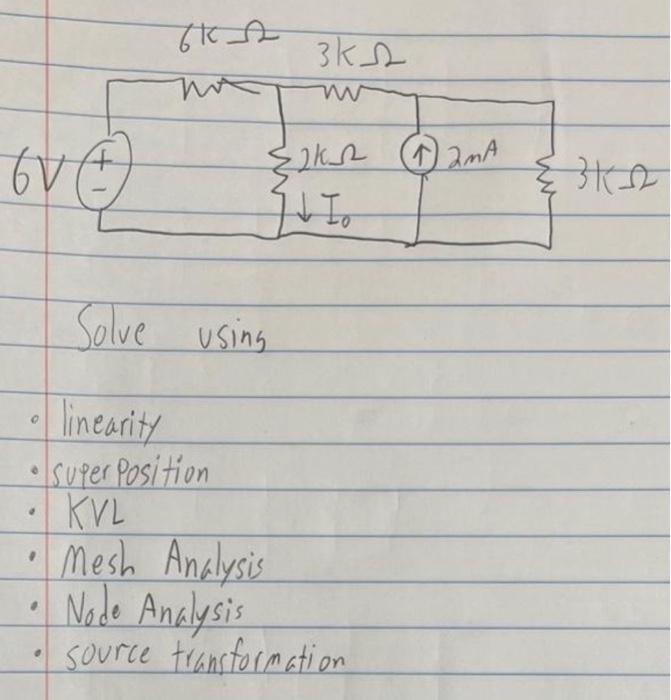 6KΩ
3KΩ
6V
+
-
2KΩ
↑ 2mA
3KΩ
↓ I₀
Solve using
• linearity
• superposition
• KVL
• Mesh Analysis
• Node Analysis
• source transformation